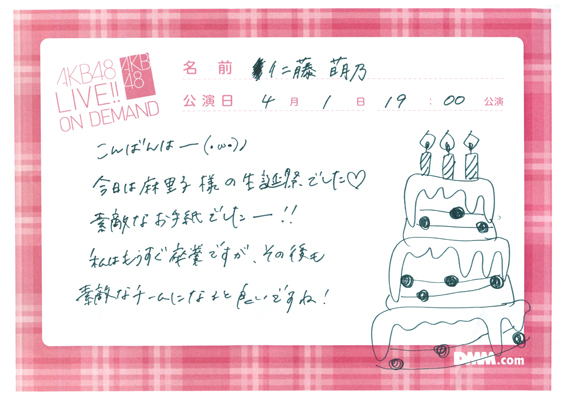 AKB48
LIVE!!
ON DEMAND
AKB
48
名前 仁藤萌乃
公演日 4月1日 19:00公演
こんばんはー(・ω・)ノ
今日は麻里子様の生誕祭でした♡
素敵なお手紙でしたー!!
私はもうすぐ卒業ですが、その後も
素敵なチームになると良いですね!
DMM.com